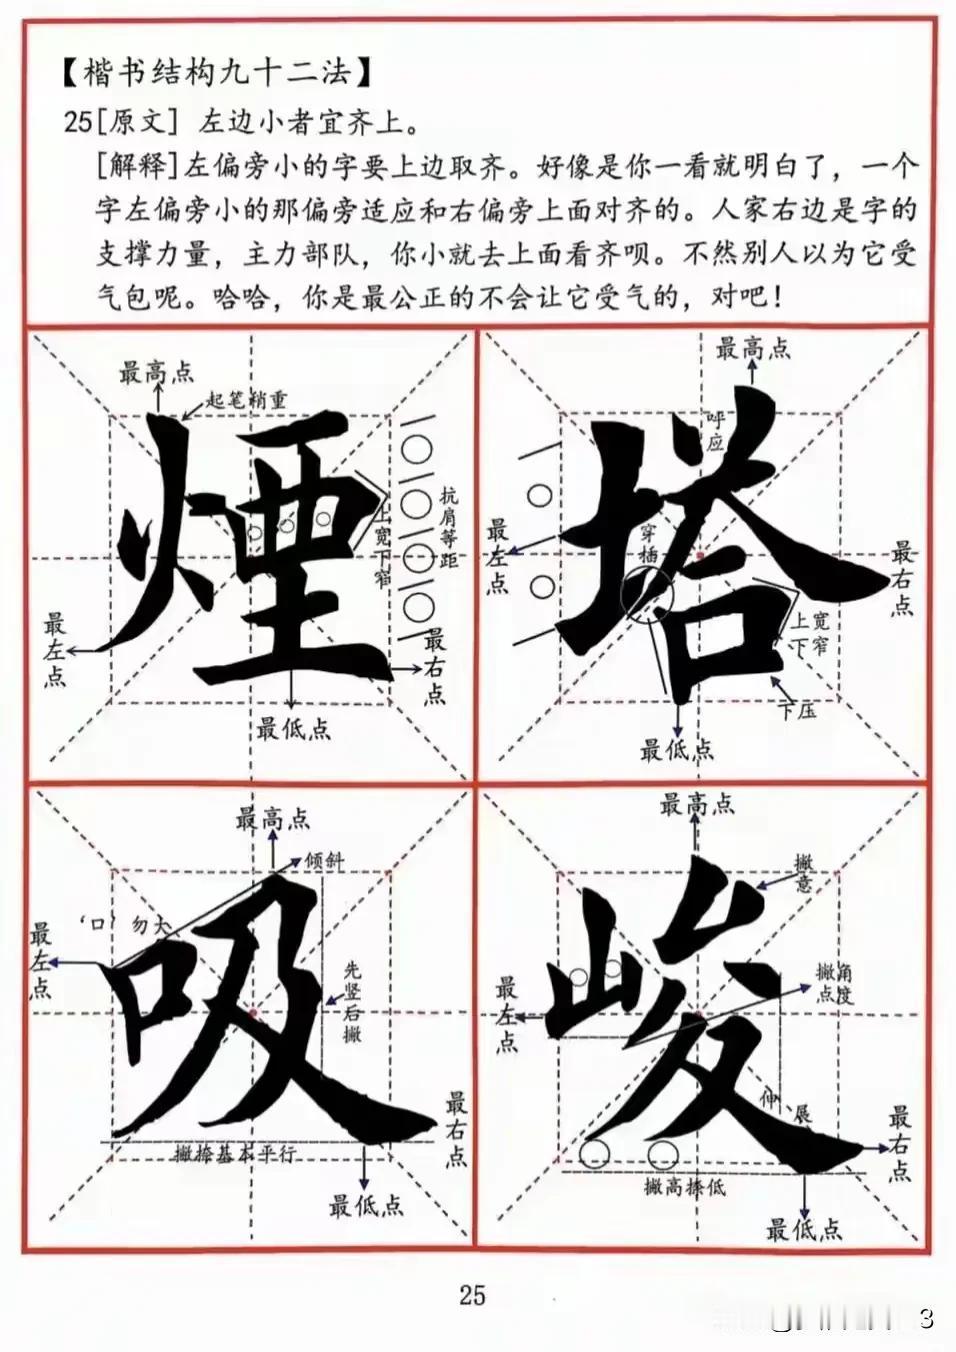 【楷书结构九十二法】
25[原文] 左边小者宜齐上。
[解释]左偏旁小的字要上边取齐。好像是你一看就明白了，一个
字左偏旁小的那偏旁适应和右偏旁上面对齐的。人家右边是字的
支撑力量，主力部队，你小就去上面看齐呗。不然别人以为它受
气包呢。哈哈，你是最公正的不会让它受气的，对吧！
最高点
起笔稍重
煙
抗肩等距
上宽下窄
最左点
最右点
最低点
最高点
呼应
塔
穿插
最左点
最右点
上宽
下窄
下压
最低点
最高点
倾斜
‘口’勿大
吸
最左点
先竖后撇
最右点
撇捺基本平行
最低点
最高点
撇意
峻
撇角
点度
最左点
伸展
最右点
撇高捺低
最低点
25
3